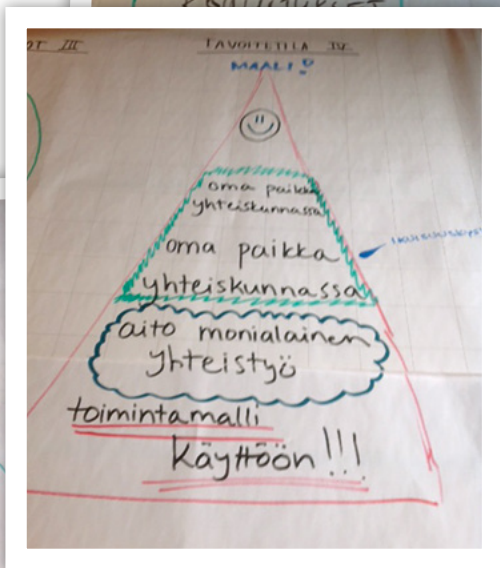 III
TAVOITETILA IV
MAALI!
oma paikka
yhteiskunnassa
oma paikka
yhteiskunnassa
aito monialainen
yhteistyö
toimintamalli
käyttöön!!!